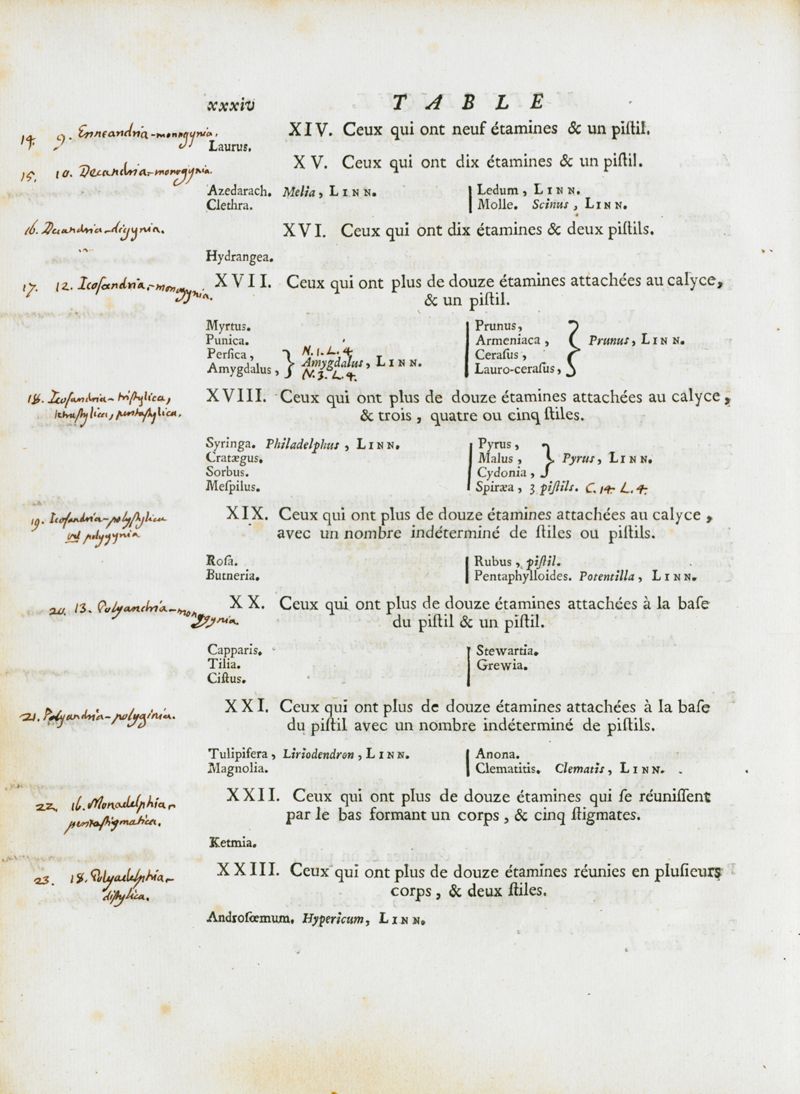 xxxiv TABLE
14. 9. Enneandria-monogynia. XIV. Ceux qui ont neuf étamines & un piſtil.
Laurus.
15. 10. Decandria-monogynia. XV. Ceux qui ont dix étamines & un piſtil.
Azedarach. Melia, LINN. Ledum, LINN.
Clethra. Molle. Scinus, LINN.
16. Decandria-digynia. XVI. Ceux qui ont dix étamines & deux piſtils.
Hydrangea.
17. 12. Icoſandria-monogynia. XVII. Ceux qui ont plus de douze étamines attachées au calyce,
& un piſtil.
Myrtus. Prunus,
Punica. Armeniaca, Prunus, LINN.
Perſica, N. 1. L. 4. Ceraſus,
Amygdalus, Amygdalus, LINN. Lauro-ceraſus,
N. 3. L. 4.
18. Icoſandria-triſtylica, XVIII. Ceux qui ont plus de douze étamines attachées au calyce,
tetraſtylica, pentaſtylica. & trois, quatre ou cinq ſtiles.
Syringa. Philadelphus, LINN. Pyrus,
Cratægus. Malus, Pyrus, LINN.
Sorbus. Cydonia,
Meſpilus. Spiræa, 3 piſtils. C. 14. L. 4.
19. Icoſandria-polyſtylica XIX. Ceux qui ont plus de douze étamines attachées au calyce,
vel polygynia avec un nombre indéterminé de ſtiles ou piſtils.
Roſa. Rubus, piſtil.
Butneria. Pentaphylloides. Potentilla, LINN.
20. 13. Polyandria-monogynia. XX. Ceux qui ont plus de douze étamines attachées à la baſe
du piſtil & un piſtil.
Capparis. Stewartia.
Tilia. Grewia.
Ciſtus.
21. Polyandria-polyginia. XXI. Ceux qui ont plus de douze étamines attachées à la baſe
du piſtil avec un nombre indéterminé de piſtils.
Tulipifera, Liriodendron, LINN. Anona.
Magnolia. Clematitis. Clematis, LINN.
22. 16. Monadelphia- XXII. Ceux qui ont plus de douze étamines qui ſe réuniſſent
pentaſtigmatica. par le bas formant un corps, & cinq ſtigmates.
Ketmia.
23. 18. Polyadelphia- XXIII. Ceux qui ont plus de douze étamines réunies en pluſieurs
diſtylica. corps, & deux ſtiles.
Androſœmum. Hypericum, LINN.